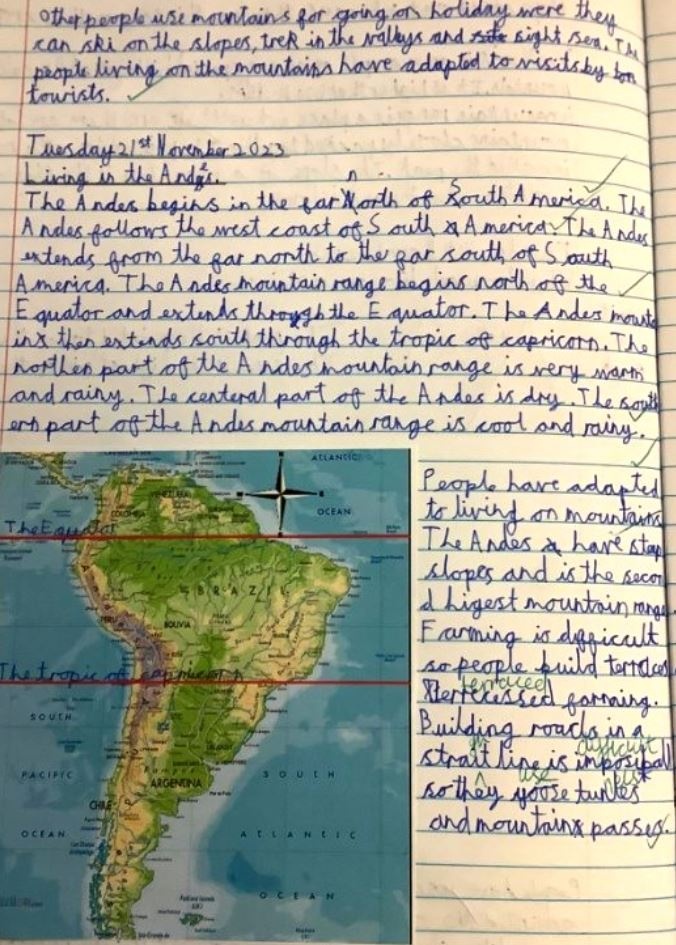 Other people use mountains for going on holiday were they
can ski on the slopes, trek in the valleys and sight sea. The
people living on the mountains have adapted to visits by
tourists.
Tuesday 21st November 2023
Living in the Andes.
The Andes begins in the far north of South America. The
Andes follows the west coast of South America. The Andes
extends from the far north to the far south of South
America. The Andes mountain range begins north of the
Equator and extends through the Equator. The Andes mounta
ins then extends south through the tropic of capricorn. The
northen part of the Andes mountain range is very warm
and rainy. The centeral part of the Andes is dry. The south
ern part of the Andes mountain range is cool and rainy.
ATLANTIC
OCEAN
VENEZUELA
COLOMBIA
The Equator
BRAZIL
PERU
BOLIVIA
The tropic of capricorn
SOUTH
PACIFIC
OCEAN
ARGENTINA
CHILE
SOUTH
ATLANTIC
OCEAN
People have adapted
to living on mountains
The Andes have step
slopes and is the secon
d higest mountain range.
Farming is difficult
so people build terraces
terraced
Terrecessed farming.
Building roads in a
difficult
strait line is imposipall
use
so they yoose tunles
and mountain passes.